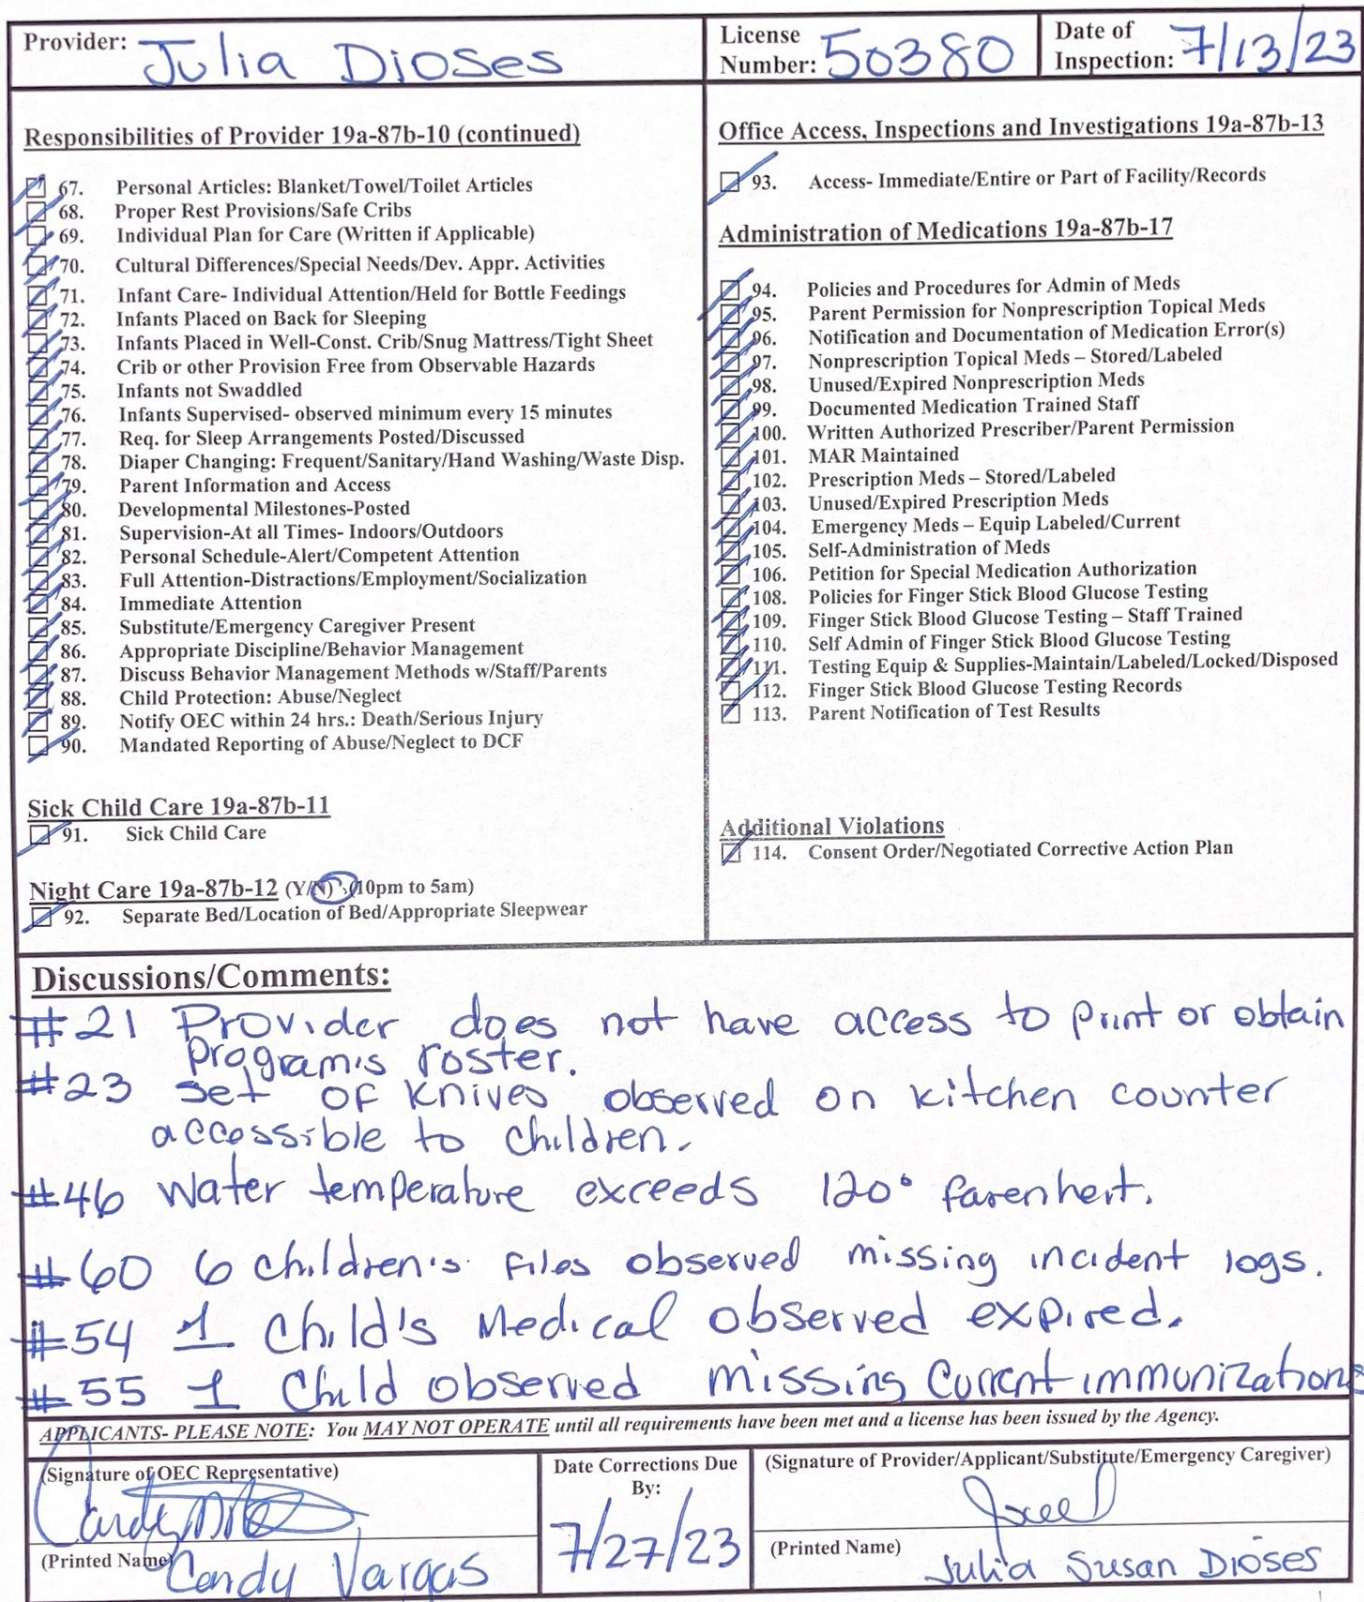 Provider: Julia Dioses
License Number: 50380
Date of Inspection: 7/13/23
Responsibilities of Provider 19a-87b-10 (continued)
67. Personal Articles: Blanket/Towel/Toilet Articles
68. Proper Rest Provisions/Safe Cribs
69. Individual Plan for Care (Written if Applicable)
70. Cultural Differences/Special Needs/Dev. Appr. Activities
71. Infant Care- Individual Attention/Held for Bottle Feedings
72. Infants Placed on Back for Sleeping
73. Infants Placed in Well-Const. Crib/Snug Mattress/Tight Sheet
74. Crib or other Provision Free from Observable Hazards
75. Infants not Swaddled
76. Infants Supervised- observed minimum every 15 minutes
77. Req. for Sleep Arrangements Posted/Discussed
78. Diaper Changing: Frequent/Sanitary/Hand Washing/Waste Disp.
79. Parent Information and Access
80. Developmental Milestones-Posted
81. Supervision-At all Times- Indoors/Outdoors
82. Personal Schedule-Alert/Competent Attention
83. Full Attention-Distractions/Employment/Socialization
84. Immediate Attention
85. Substitute/Emergency Caregiver Present
86. Appropriate Discipline/Behavior Management
87. Discuss Behavior Management Methods w/Staff/Parents
88. Child Protection: Abuse/Neglect
89. Notify OEC within 24 hrs.: Death/Serious Injury
90. Mandated Reporting of Abuse/Neglect to DCF
Sick Child Care 19a-87b-11
91. Sick Child Care
Night Care 19a-87b-12 (Y/N) (10pm to 5am)
92. Separate Bed/Location of Bed/Appropriate Sleepwear
Office Access, Inspections and Investigations 19a-87b-13
93. Access- Immediate/Entire or Part of Facility/Records
Administration of Medications 19a-87b-17
94. Policies and Procedures for Admin of Meds
95. Parent Permission for Nonprescription Topical Meds
96. Notification and Documentation of Medication Error(s)
97. Nonprescription Topical Meds – Stored/Labeled
98. Unused/Expired Nonprescription Meds
99. Documented Medication Trained Staff
100. Written Authorized Prescriber/Parent Permission
101. MAR Maintained
102. Prescription Meds – Stored/Labeled
103. Unused/Expired Prescription Meds
104. Emergency Meds – Equip Labeled/Current
105. Self-Administration of Meds
106. Petition for Special Medication Authorization
108. Policies for Finger Stick Blood Glucose Testing
109. Finger Stick Blood Glucose Testing – Staff Trained
110. Self Admin of Finger Stick Blood Glucose Testing
111. Testing Equip & Supplies-Maintain/Labeled/Locked/Disposed
112. Finger Stick Blood Glucose Testing Records
113. Parent Notification of Test Results
Additional Violations
114. Consent Order/Negotiated Corrective Action Plan
Discussions/Comments:
#21 Provider does not have access to print or obtain
program's roster.
#23 set of knives observed on kitchen counter
accessible to children.
#46 Water temperature exceeds 120° farenheit.
#60 6 children's files observed missing incident logs.
#54 1 Child's Medical observed expired.
#55 1 Child observed missing current immunizations
APPLICANTS- PLEASE NOTE: You MAY NOT OPERATE until all requirements have been met and a license has been issued by the Agency.
(Signature of OEC Representative)
(Printed Name) Candy Vargas
Date Corrections Due
By:
7/27/23
(Signature of Provider/Applicant/Substitute/Emergency Caregiver)
(Printed Name) Julia Susan Dioses